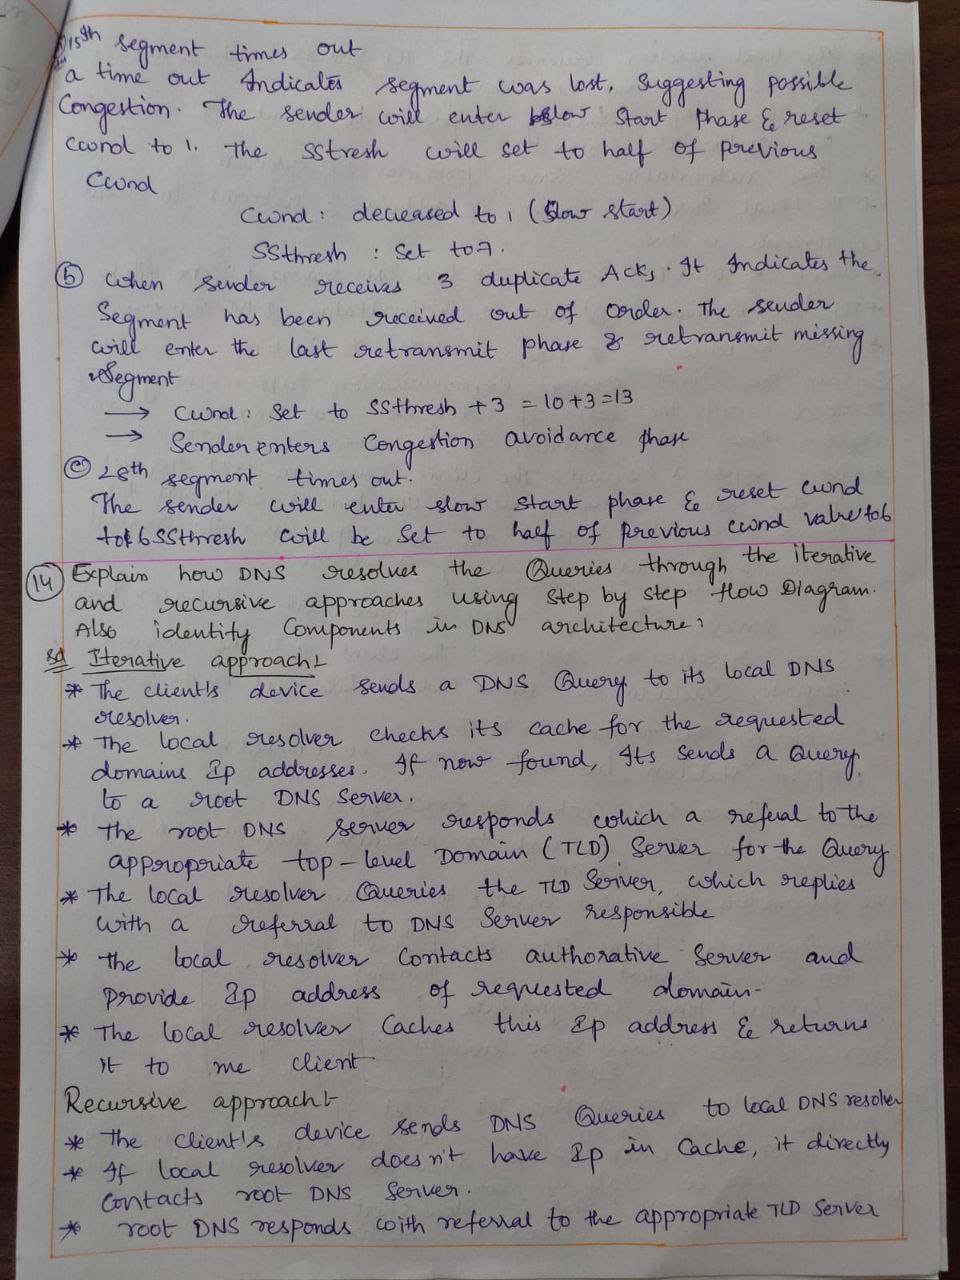 15th segment times out
a time out Indicates segment was lost, suggesting possible
Congestion. The sender will enter slow start Phase & reset
cwnd to 1. The SStresh will set to half of previous
Cwnd
Cwnd : decreased to 1 (Slow start)
SSthresh : Set to 7.
b when sender receives 3 duplicate Acks. It Indicates the
Segment has been received out of order. The sender
will enter the last retransmit phase & retransmit missing
Segment
→ Cwnd : Set to SSthresh +3 = 10+3=13
→ Sender enters Congestion avoidance phase
c 28th segment times out.
The sender will enter slow start phase & reset cwnd
to 6 SSthresh will be set to half of previous cwnd value to 6
14 Explain how DNS resolves the Queries through the iterative
and recursive approaches using step by step flow Diagram.
Also identify Components in DNS architecture?
Sol Iterative approach:-
* The client's device sends a DNS Query to its local DNS
resolver.
* The local resolver checks its cache for the requested
domains Ip addresses. If now found, Its sends a Query
to a root DNS Server.
* The root DNS server responds which a referal to the
appropriate top-level Domain (TLD) Server for the Query
* The local resolver Queries the TLD Server, which replies
with a referral to DNS Server responsible
* The local resolver Contacts authorative Server and
Provide Ip address of requested domain-
* The local resolver Caches this Ip address & returns
it to me client
Recursive approach:-
* The client's device sends DNS Queries to local DNS resolver
* If local resolver doesn't have Ip in Cache, it directly
Contacts root DNS Server.
* root DNS responds with referral to the appropriate TLD Server